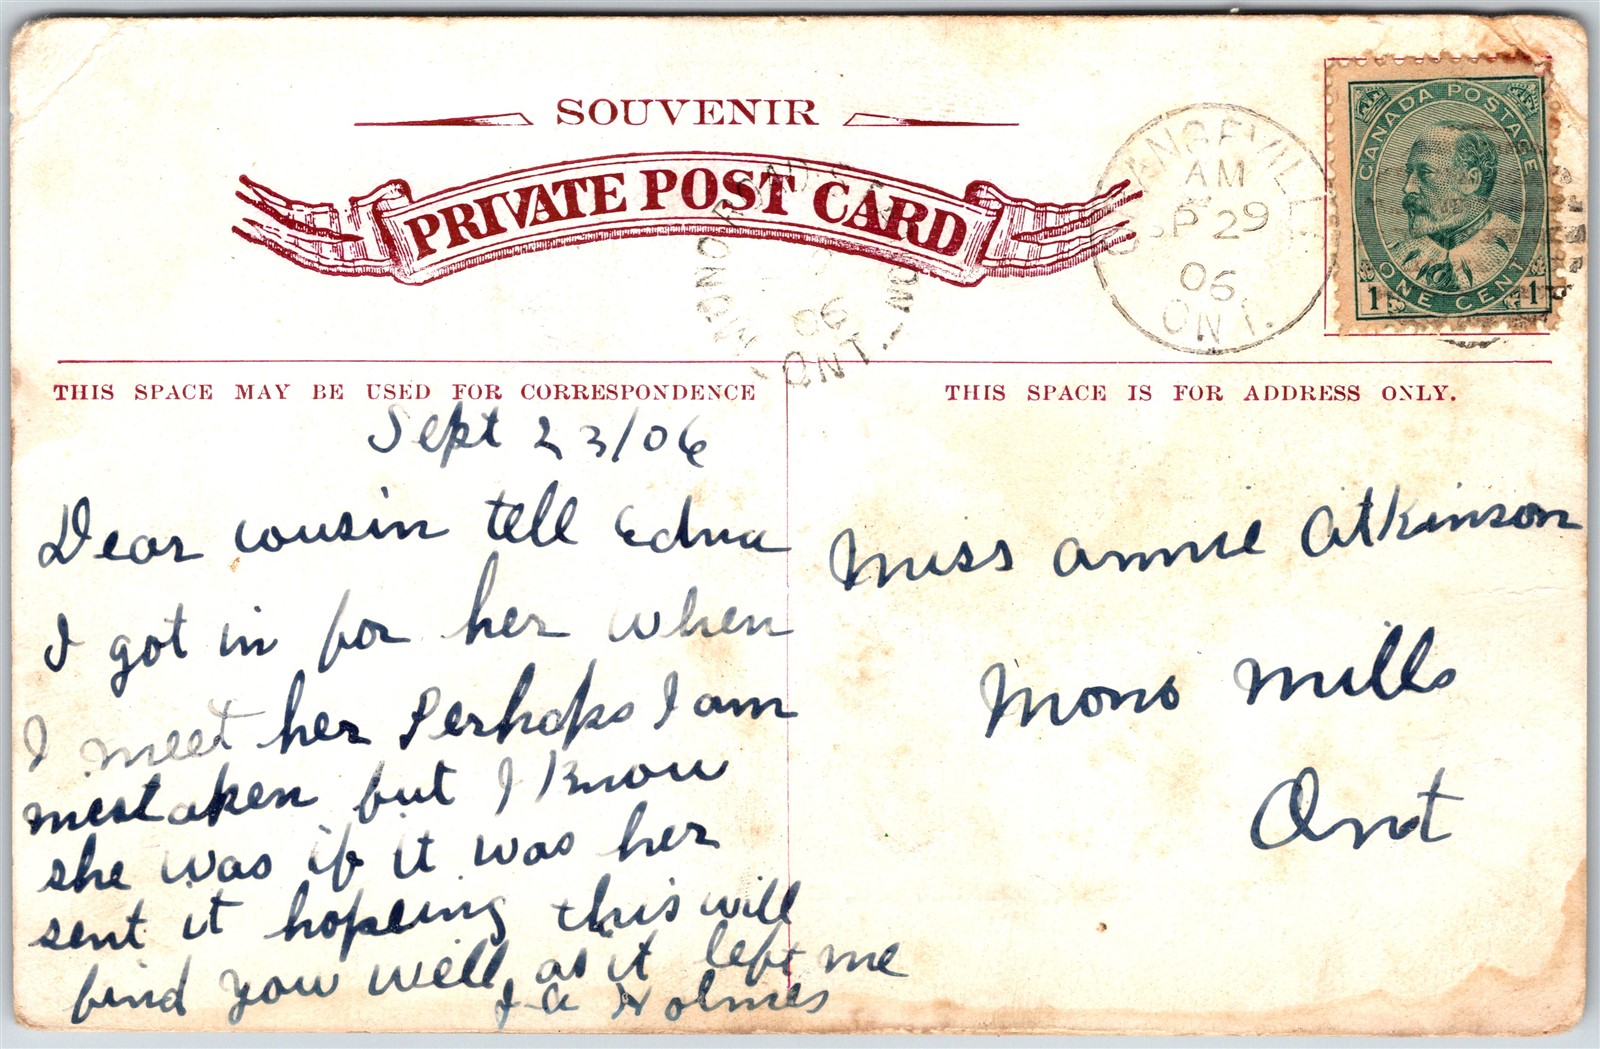 SOUVENIR
PRIVATE POST CARD
CANADA POSTAGE
ONE CENT
1 1
ORANGEVILLE
AM
SP 29
06
ONT.
MONO ROAD
06
ONT.
THIS SPACE MAY BE USED FOR CORRESPONDENCE
THIS SPACE IS FOR ADDRESS ONLY.
Sept 23/06
Dear cousin tell Edna
I got in for her when
I meet her Perhaps I am
mestaken but I know
she was if it was her
sent it hopeing this will
find you well as it left me
J A Holmes
Miss Annie Atkinson
Mono Mills
Ont